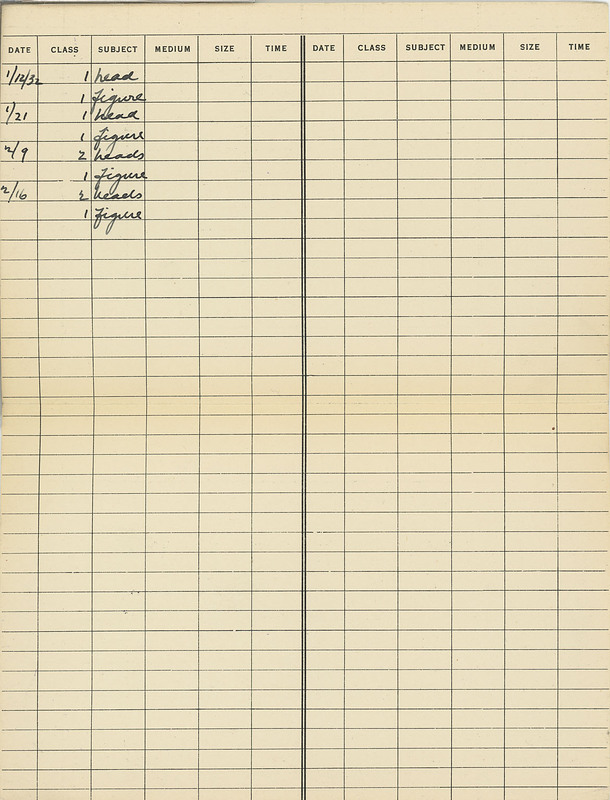 DATE CLASS SUBJECT MEDIUM SIZE TIME DATE CLASS SUBJECT MEDIUM SIZE TIME
1/12/32 1 head
1 figure
1/21 1 head
1 figure
2/9 2 heads
1 figure
2/16 2 heads
1 figure